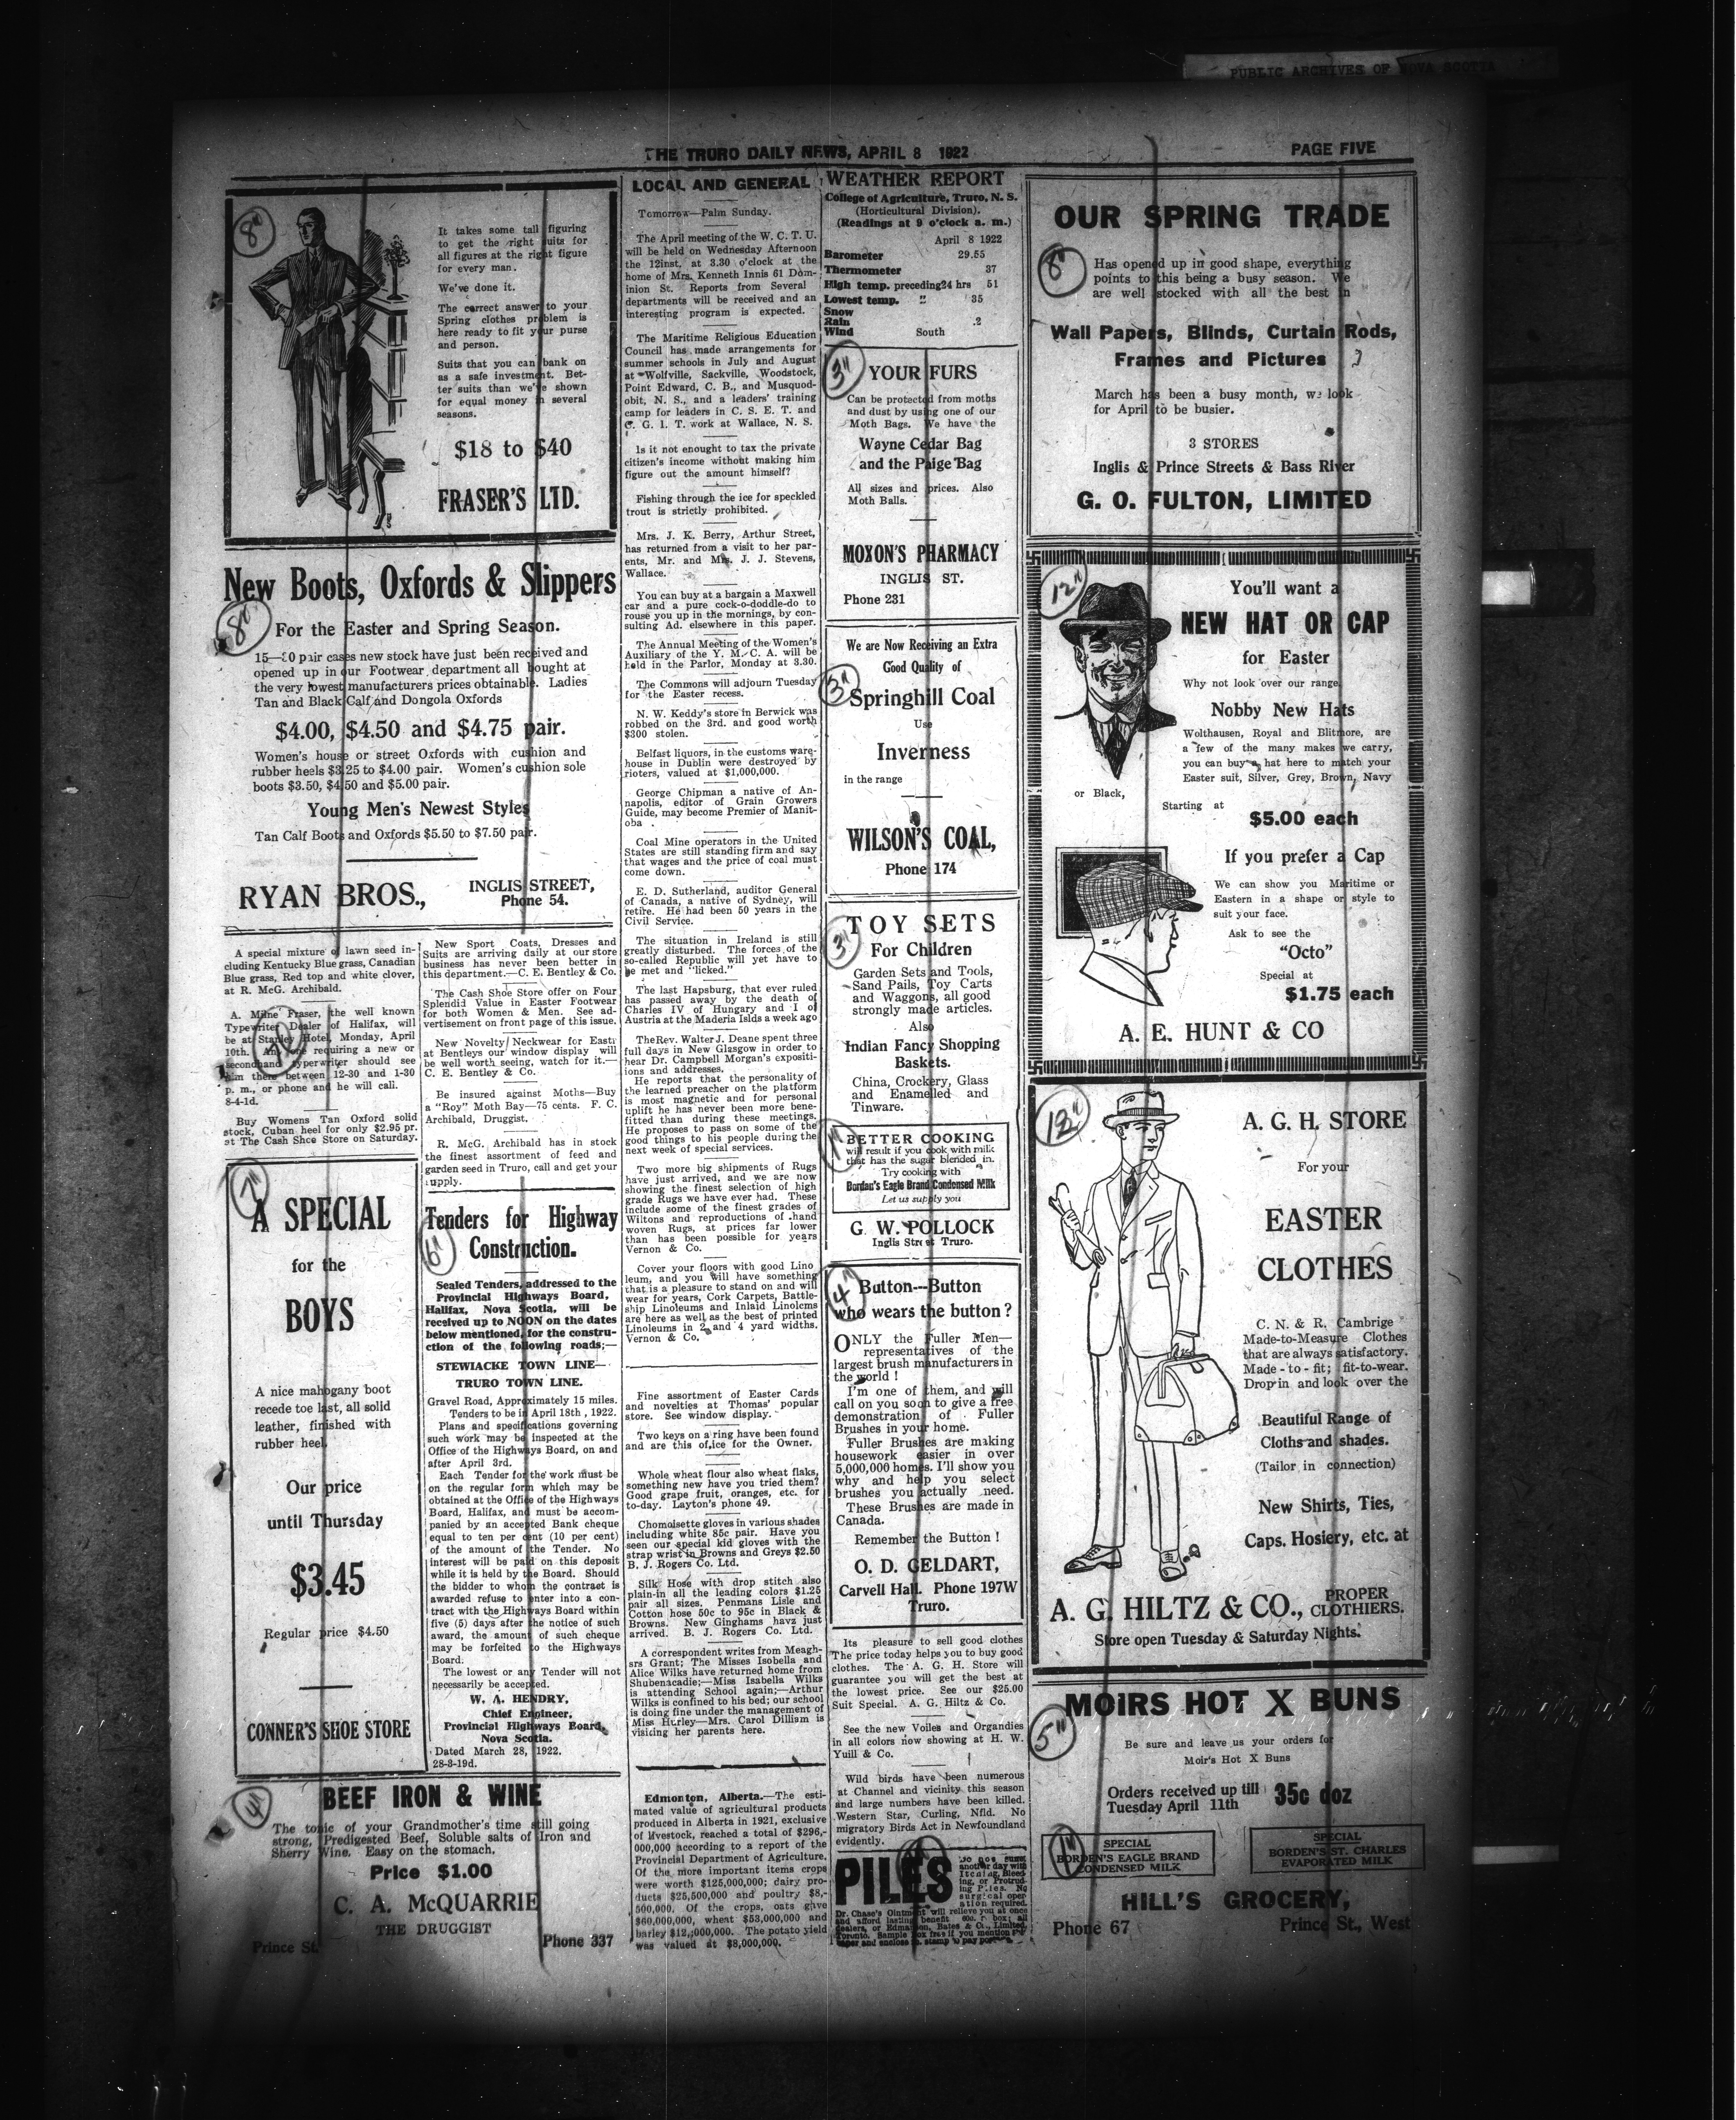 PUBLIC ARCHIVES OF NOVA SCOTIA
THE TRURO DAILY NEWS, APRIL 8 1922
PAGE FIVE
8"
It takes some tall figuring
to get the right suits for
all figures at the right figure
for every man.
We've done it.
The correct answer to your
Spring clothes problem is
here ready to fit your purse
and person.
Suits that you can bank on
as a safe investment. Bet-
ter suits than we've shown
for equal money in several
seasons.
$18 to $40
FRASER'S LTD.
New Boots, Oxfords & Slippers
8"
For the Easter and Spring Season.
15—30 pair cases new stock have just been received and
opened up in our Footwear department all bought at
the very lowest manufacturers prices obtainable. Ladies
Tan and Black Calf and Dongola Oxfords
$4.00, $4.50 and $4.75 pair.
Women's house or street Oxfords with cushion and
rubber heels $3.25 to $4.00 pair. Women's cushion sole
boots $3.50, $4.50 and $5.00 pair.
Young Men's Newest Styles
Tan Calf Boots and Oxfords $5.50 to $7.50 pair.
RYAN BROS.,
INGLIS STREET,
Phone 54.
A special mixture of lawn seed in-
cluding Kentucky Blue grass, Canadian
Blue grass, Red top and white clover,
at R. McG. Archibald.
A. Milne Fraser, the well known
Typewriter Dealer of Halifax, will
be at Stanley Hotel, Monday, April
10th. Any one requiring a new or
secondhand typewriter should see
him there between 12-30 and 1-30
p. m., or phone and he will call.
8-4-1d.
Buy Womens Tan Oxford solid
stock, Cuban heel for only $2.95 pr.
at The Cash Shoe Store on Saturday.
7"
A SPECIAL
for the
BOYS
A nice mahogany boot
recede toe last, all solid
leather, finished with
rubber heel.
Our price
until Thursday
$3.45
Regular price $4.50
CONNER'S SHOE STORE
New Sport Coats, Dresses and
Suits are arriving daily at our store
business has never been better in
this department.—C. E. Bentley & Co.
The Cash Shoe Store offer on Four
Splendid Value in Easter Footwear
for both Women & Men. See ad-
vertisement on front page of this issue.
New Novelty Neckwear for East
at Bentleys our window display will
be well worth seeing, watch for it.—
C. E. Bentley & Co.
Be insured against Moths—Buy
a "Roy" Moth Bay—75 cents. F. C.
Archibald, Druggist.
R. McG. Archibald has in stock
the finest assortment of feed and
garden seed in Truro, call and get your
supply.
Tenders for Highway
Construction.
6"
Sealed Tenders, addressed to the
Provincial Highways Board,
Halifax, Nova Scotia, will be
received up to NOON on the dates
below mentioned, for the constru-
ction of the following roads;—
STEWIACKE TOWN LINE—
TRURO TOWN LINE.
Gravel Road, Approximately 15 miles.
Tenders to be in April 18th, 1922.
Plans and specifications governing
such work may be inspected at the
Office of the Highways Board, on and
after April 3rd.
Each Tender for the work must be
on the regular form which may be
obtained at the Office of the Highways
Board, Halifax, and must be accom-
panied by an accepted Bank cheque
equal to ten per cent (10 per cent)
of the amount of the Tender. No
interest will be paid on this deposit
while it is held by the Board. Should
the bidder to whom the contract is
awarded refuse to enter into a con-
tract with the Highways Board within
five (5) days after the notice of such
award, the amount of such cheque
may be forfeited to the Highways
Board.
The lowest or any Tender will not
necessarily be accepted.
W. A. HENDRY,
Chief Engineer,
Provincial Highways Board,
Nova Scotia.
Dated March 28, 1922.
28-3-19d.
4"
BEEF IRON & WINE
The tonic of your Grandmother's time still going
strong, Predigested Beef, Soluble salts of Iron and
Sherry Wine. Easy on the stomach.
Price $1.00
C. A. McQUARRIE
THE DRUGGIST
Prince St.
Phone 337
LOCAL AND GENERAL
Tomorrow—Palm Sunday.
The April meeting of the W. C. T. U.
will be held on Wednesday Afternoon
the 12inst. at 3.30 o'clock at the
home of Mrs. Kenneth Innis 61 Dom-
inion St. Reports from Several
departments will be received and an
interesting program is expected.
The Maritime Religious Education
Council has made arrangements for
summer schools in July and August
at Wolfville, Sackville, Woodstock,
Point Edward, C. B., and Musquod-
obit, N. S., and a leaders' training
camp for leaders in C. S. E. T. and
C. G. I. T. work at Wallace, N. S.
Is it not enought to tax the private
citizen's income without making him
figure out the amount himself?
Fishing through the ice for speckled
trout is strictly prohibited.
Mrs. J. K. Berry, Arthur Street,
has returned from a visit to her par-
ents, Mr. and Mrs. J. J. Stevens,
Wallace.
You can buy at a bargain a Maxwell
car and a pure cock-o-doddle-do to
rouse you up in the mornings, by con-
sulting Ad. elsewhere in this paper.
The Annual Meeting of the Women's
Auxiliary of the Y. M. C. A. will be
held in the Parlor, Monday at 3.30.
The Commons will adjourn Tuesday
for the Easter recess.
N. W. Keddy's store in Berwick was
robbed on the 3rd. and good worth
$300 stolen.
Belfast liquors, in the customs ware-
house in Dublin were destroyed by
rioters, valued at $1,000,000.
George Chipman a native of An-
napolis, editor of Grain Growers
Guide, may become Premier of Manit-
oba .
Coal Mine operators in the United
States are still standing firm and say
that wages and the price of coal must
come down.
E. D. Sutherland, auditor General
of Canada, a native of Sydney, will
retire. He had been 50 years in the
Civil Service.
The situation in Ireland is still
greatly disturbed. The forces of the
so-called Republic will yet have to
be met and "licked."
The last Hapsburg, that ever ruled
has passed away by the death of
Charles IV of Hungary and I of
Austria at the Maderia Islds a week ago
The Rev. Walter J. Deane spent three
full days in New Glasgow in order to
hear Dr. Campbell Morgan's expositi-
ions and addresses.
He reports that the personality of
the learned preacher on the platform
is most magnetic and for personal
uplift he has never been more bene-
fitted than during these meetings.
He proposes to pass on some of the
good things to his people during the
next week of special services.
Two more big shipments of Rugs
have just arrived, and we are now
showing the finest selection of high
grade Rugs we have ever had. These
include some of the finest grades of
Wiltons and reproductions of hand
woven Rugs, at prices far lower
than has been possible for years
Vernon & Co.
Cover your floors with good Lino
leum, and you will have something
that is a pleasure to stand on and will
wear for years, Cork Carpets, Battle-
ship Linoleums and Inlaid Linolems
are here as well as the best of printed
Linoleums in 2 and 4 yard widths.
Vernon & Co.
Fine assortment of Easter Cards
and novelties at Thomas' popular
store. See window display.
Two keys on a ring have been found
and are this office for the Owner.
Whole wheat flour also wheat flaks,
something new have you tried them?
Good grape fruit, oranges, etc. for
to-day. Layton's phone 49.
Chomoisette gloves in various shades
including white 85c pair. Have you
seen our special kid gloves with the
strap wrist in Browns and Greys $2.50
B. J. Rogers Co. Ltd.
Silk Hose with drop stitch also
plain-in all the leading colors $1.25
pair all sizes. Penmans Lisle and
Cotton hose 50c to 95c in Black &
Browns. New Ginghams havz just
arrived. B. J. Rogers Co. Ltd.
A correspondent writes from Meagh-
srs Grant; The Misses Isobella and
Alice Wilks have returned home from
Shubenacadie;—Miss Isabella Wilks
is attending School again;—Arthur
Wilks is confined to his bed; our school
is doing fine under the management of
Miss Hurley—Mrs. Carol Dilliam is
visiting her parents here.
Edmonton, Alberta.—The esti-
mated value of agricultural products
produced in Alberta in 1921, exclusive
of livestock, reached a total of $296,-
000,000 according to a report of the
Provincial Department of Agriculture.
Of the more important items crops
were worth $125,000,000; dairy pro-
ducts $25,500,000 and poultry $8,-
500,000. Of the crops, oats give
$60,000,000, wheat $53,000,000 and
barley $12,000,000. The potato yield
was valued at $8,000,000.
WEATHER REPORT
College of Agriculture, Truro, N. S.
(Horticultural Division).
(Readings at 9 o'clock a. m.)
April 8 1922
Barometer 29.55
Thermometer 37
High temp. preceding 24 hrs 51
Lowest temp. " 35
Snow
Rain .2
Wind South
3"
YOUR FURS
Can be protected from moths
and dust by using one of our
Moth Bags. We have the
Wayne Cedar Bag
and the Paige Bag
All sizes and prices. Also
Moth Balls.
MOXON'S PHARMACY
INGLIS ST.
Phone 231
We are Now Receiving an Extra
Good Quality of
3"
Springhill Coal
Use
Inverness
in the range
WILSON'S COAL,
Phone 174
TOY SETS
3"
For Children
Garden Sets and Tools,
Sand Pails, Toy Carts
and Waggons, all good
strongly made articles.
Also
Indian Fancy Shopping
Baskets.
China, Crockery, Glass
and Enamelled and
Tinware.
1"
BETTER COOKING
will result if you cook with milk
that has the sugar blended in.
Try cooking with
Bordan's Eagle Brand Condensed Milk
Let us supply you
G. W. POLLOCK
Inglis Street Truro.
4"
Button---Button
who wears the button?
ONLY the Fuller Men—
representatives of the
largest brush manufacturers in
the world!
I'm one of them, and will
call on you soon to give a free
demonstration of Fuller
Brushes in your home.
Fuller Brushes are making
housework easier in over
5,000,000 homes. I'll show you
why and help you select
brushes you actually need.
These Brushes are made in
Canada.
Remember the Button!
O. D. GELDART,
Carvell Hall. Phone 197W
Truro.
Its pleasure to sell good clothes
The price today helps you to buy good
clothes. The A. G. H. Store will
guarantee you will get the best at
the lowest price. See our $25.00
Suit Special. A. G. Hiltz & Co.
See the new Voiles and Organdies
in all colors now showing at H. W.
Yuill & Co.
Wild birds have been numerous
at Channel and vicinity this season
and large numbers have been killed.
Western Star, Curling, Nfld. No
migratory Birds Act in Newfoundland
evidently.
PILES
Do not suffer
another day with
Itching, Bleed-
ing, or Protrud-
ing Piles. No
surgical oper
ation required.
Dr. Chase's Ointment will relieve you at once
and afford lasting benefit 60c. a box; all
dealers, or Edmanson, Bates & Co., Limited,
Toronto. Sample Box free if you mention this
paper and enclose stamp to pay postage.
OUR SPRING TRADE
8"
Has opened up in good shape, everything
points to this being a busy season. We
are well stocked with all the best in
Wall Papers, Blinds, Curtain Rods,
Frames and Pictures
March has been a busy month, we look
for April to be busier.
3 STORES
Inglis & Prince Streets & Bass River
G. O. FULTON, LIMITED
12"
You'll want a
NEW HAT OR CAP
for Easter
Why not look over our range
Nobby New Hats
Wolthausen, Royal and Blitmore, are
a few of the many makes we carry,
you can buy a hat here to match your
Easter suit, Silver, Grey, Brown, Navy
or Black,
Starting at
$5.00 each
If you prefer a Cap
We can show you Maritime or
Eastern in a shape or style to
suit your face.
Ask to see the
"Octo"
Special at
$1.75 each
A. E. HUNT & CO
12"
A. G. H. STORE
For your
EASTER
CLOTHES
C. N. & R. Cambrige
Made-to-Measure Clothes
that are always satisfactory.
Made-to-fit; fit-to-wear.
Drop in and look over the
Beautiful Range of
Cloths and shades.
(Tailor in connection)
New Shirts, Ties,
Caps, Hosiery, etc. at
A. G. HILTZ & CO., PROPER
CLOTHIERS.
Store open Tuesday & Saturday Nights.
MOIRS HOT X BUNS
5"
Be sure and leave us your orders for
Moir's Hot X Buns
Orders received up till
Tuesday April 11th
35c doz
1"
SPECIAL
BORDEN'S EAGLE BRAND
CONDENSED MILK
SPECIAL
BORDEN'S ST. CHARLES
EVAPORATED MILK
HILL'S GROCERY,
Phone 67
Prince St., West